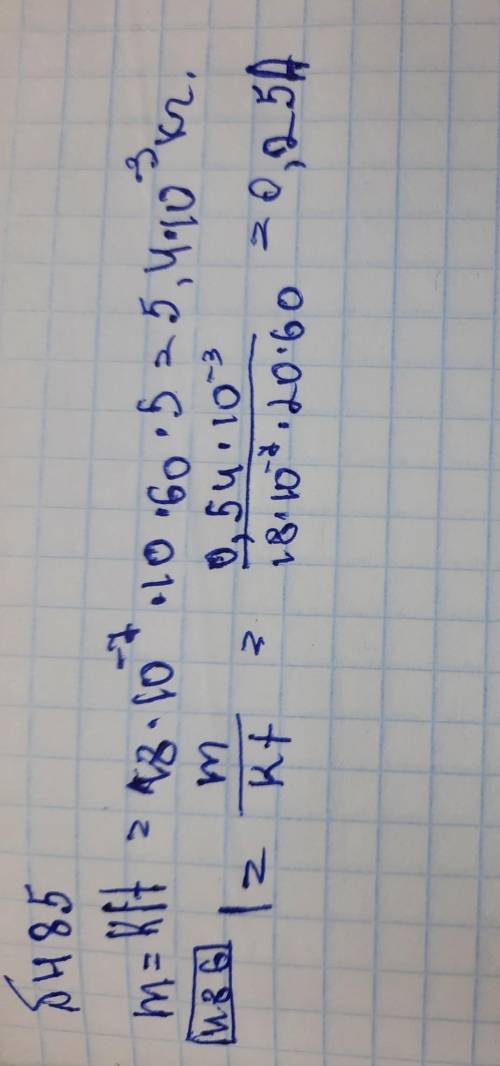 № 485
m = kIt = 18 · 10⁻⁷ · 10 · 60 · 5 = 5,4 · 10⁻³ кг.
486
I = m / kt = 0,54 · 10⁻³ / 18 · 10⁻⁷ · 20 · 60 = 0,25А